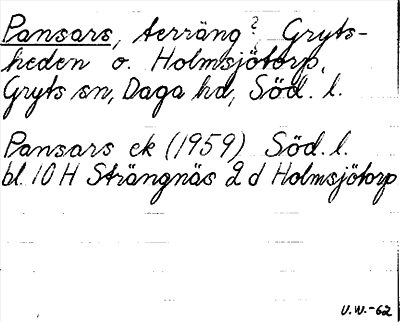 Pansars, terräng? Gryts-
heden o. Holmsjötorp,
Gryts sn, Daga hd, Söd. l.
Pansars ek (1959) Söd. l.
bl. 10 H Strängnäs 2 d Holmsjötorp
U.W.-62